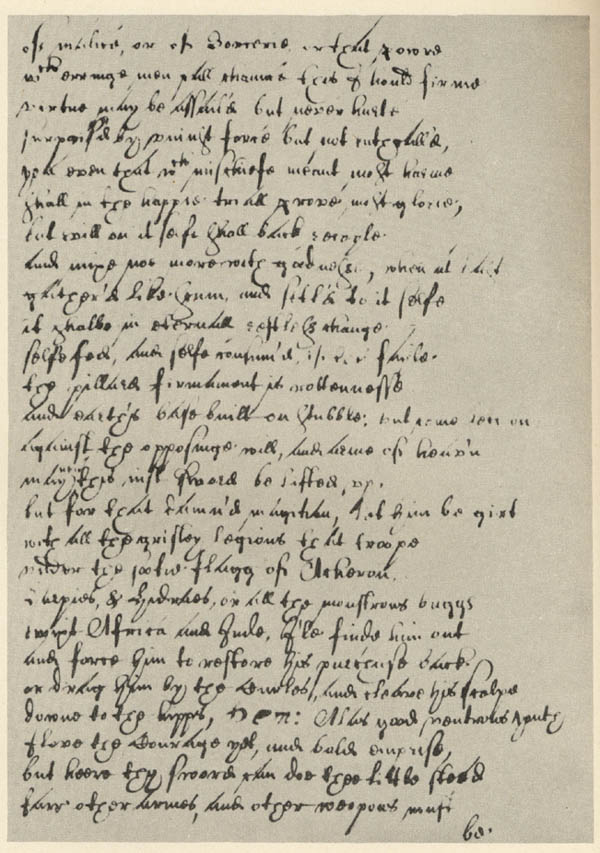 of malice, or of Sorcerie, or that powre
wch erringe men call chance this I hould firme
vertue may be assail'd but never hurte
surpris'd by vniust force but not enthrall'd,
yea even that wch mischiefe meant most harme
shall in the happie triall prove most glorie,
but evill on it selfe shall back recoyle
and mixe noe more with goodnesse, when at last
gather'd like scum, and setl'd to it selfe
it shalbe in eternall restlesse change
selfe fed, and selfe consum'd, if
the pillard firmament is rottennesse
and earth's base built on stubble: but come lets on
against the opposinge will, and arme of heav'n
may never this iust sword be lifted vp.
but for that damn'd magitian, let him be girt
with all the grisley legions that troope
vnder the sootie flagg of Acheron.
Harpies, & Hydraes, or all the monstrous buggs
twixt Africa and Inde, Ile finde him out
and force him to restore his purchase back
or drag him by the Curles, and cleave his scalpe
downe to the hipps, Dem: Alas good ventrous youth
I love thy Courage yet, and bold emprise,
but heere thy sword can doe thee little stead
farr other armes, and other weopons must
be.